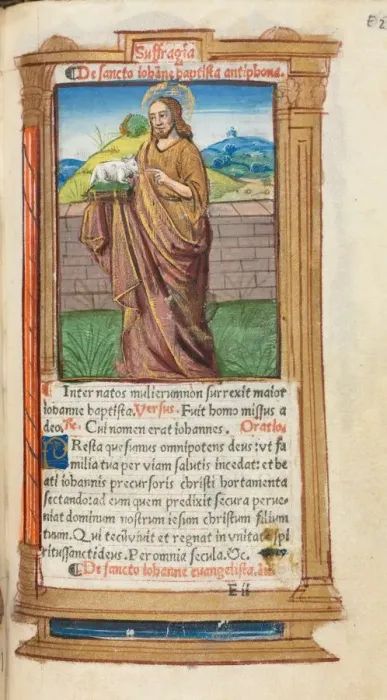 E2
Suffragia
De sancto iohãne baptista antiphona.
Inter natos mulierum non surrexit maior
iohanne baptista. Versus. Fuit homo missus a
deo. Re. Cui nomen erat iohannes. Oratio.
PResta quesumus omnipotens deus: vt fa
milia tua per viam salutis incedat: et be
ati iohannis precursoris christi hortamenta
sectando: ad eum quem predixit secura perue
niat dominum nostrum iesum christum filium
tuum. Qui tecū viuit et regnat in vnitate spi
ritussancti deus. Per omnia secula. &c.
De sancto iohanne euangelista.
E ii